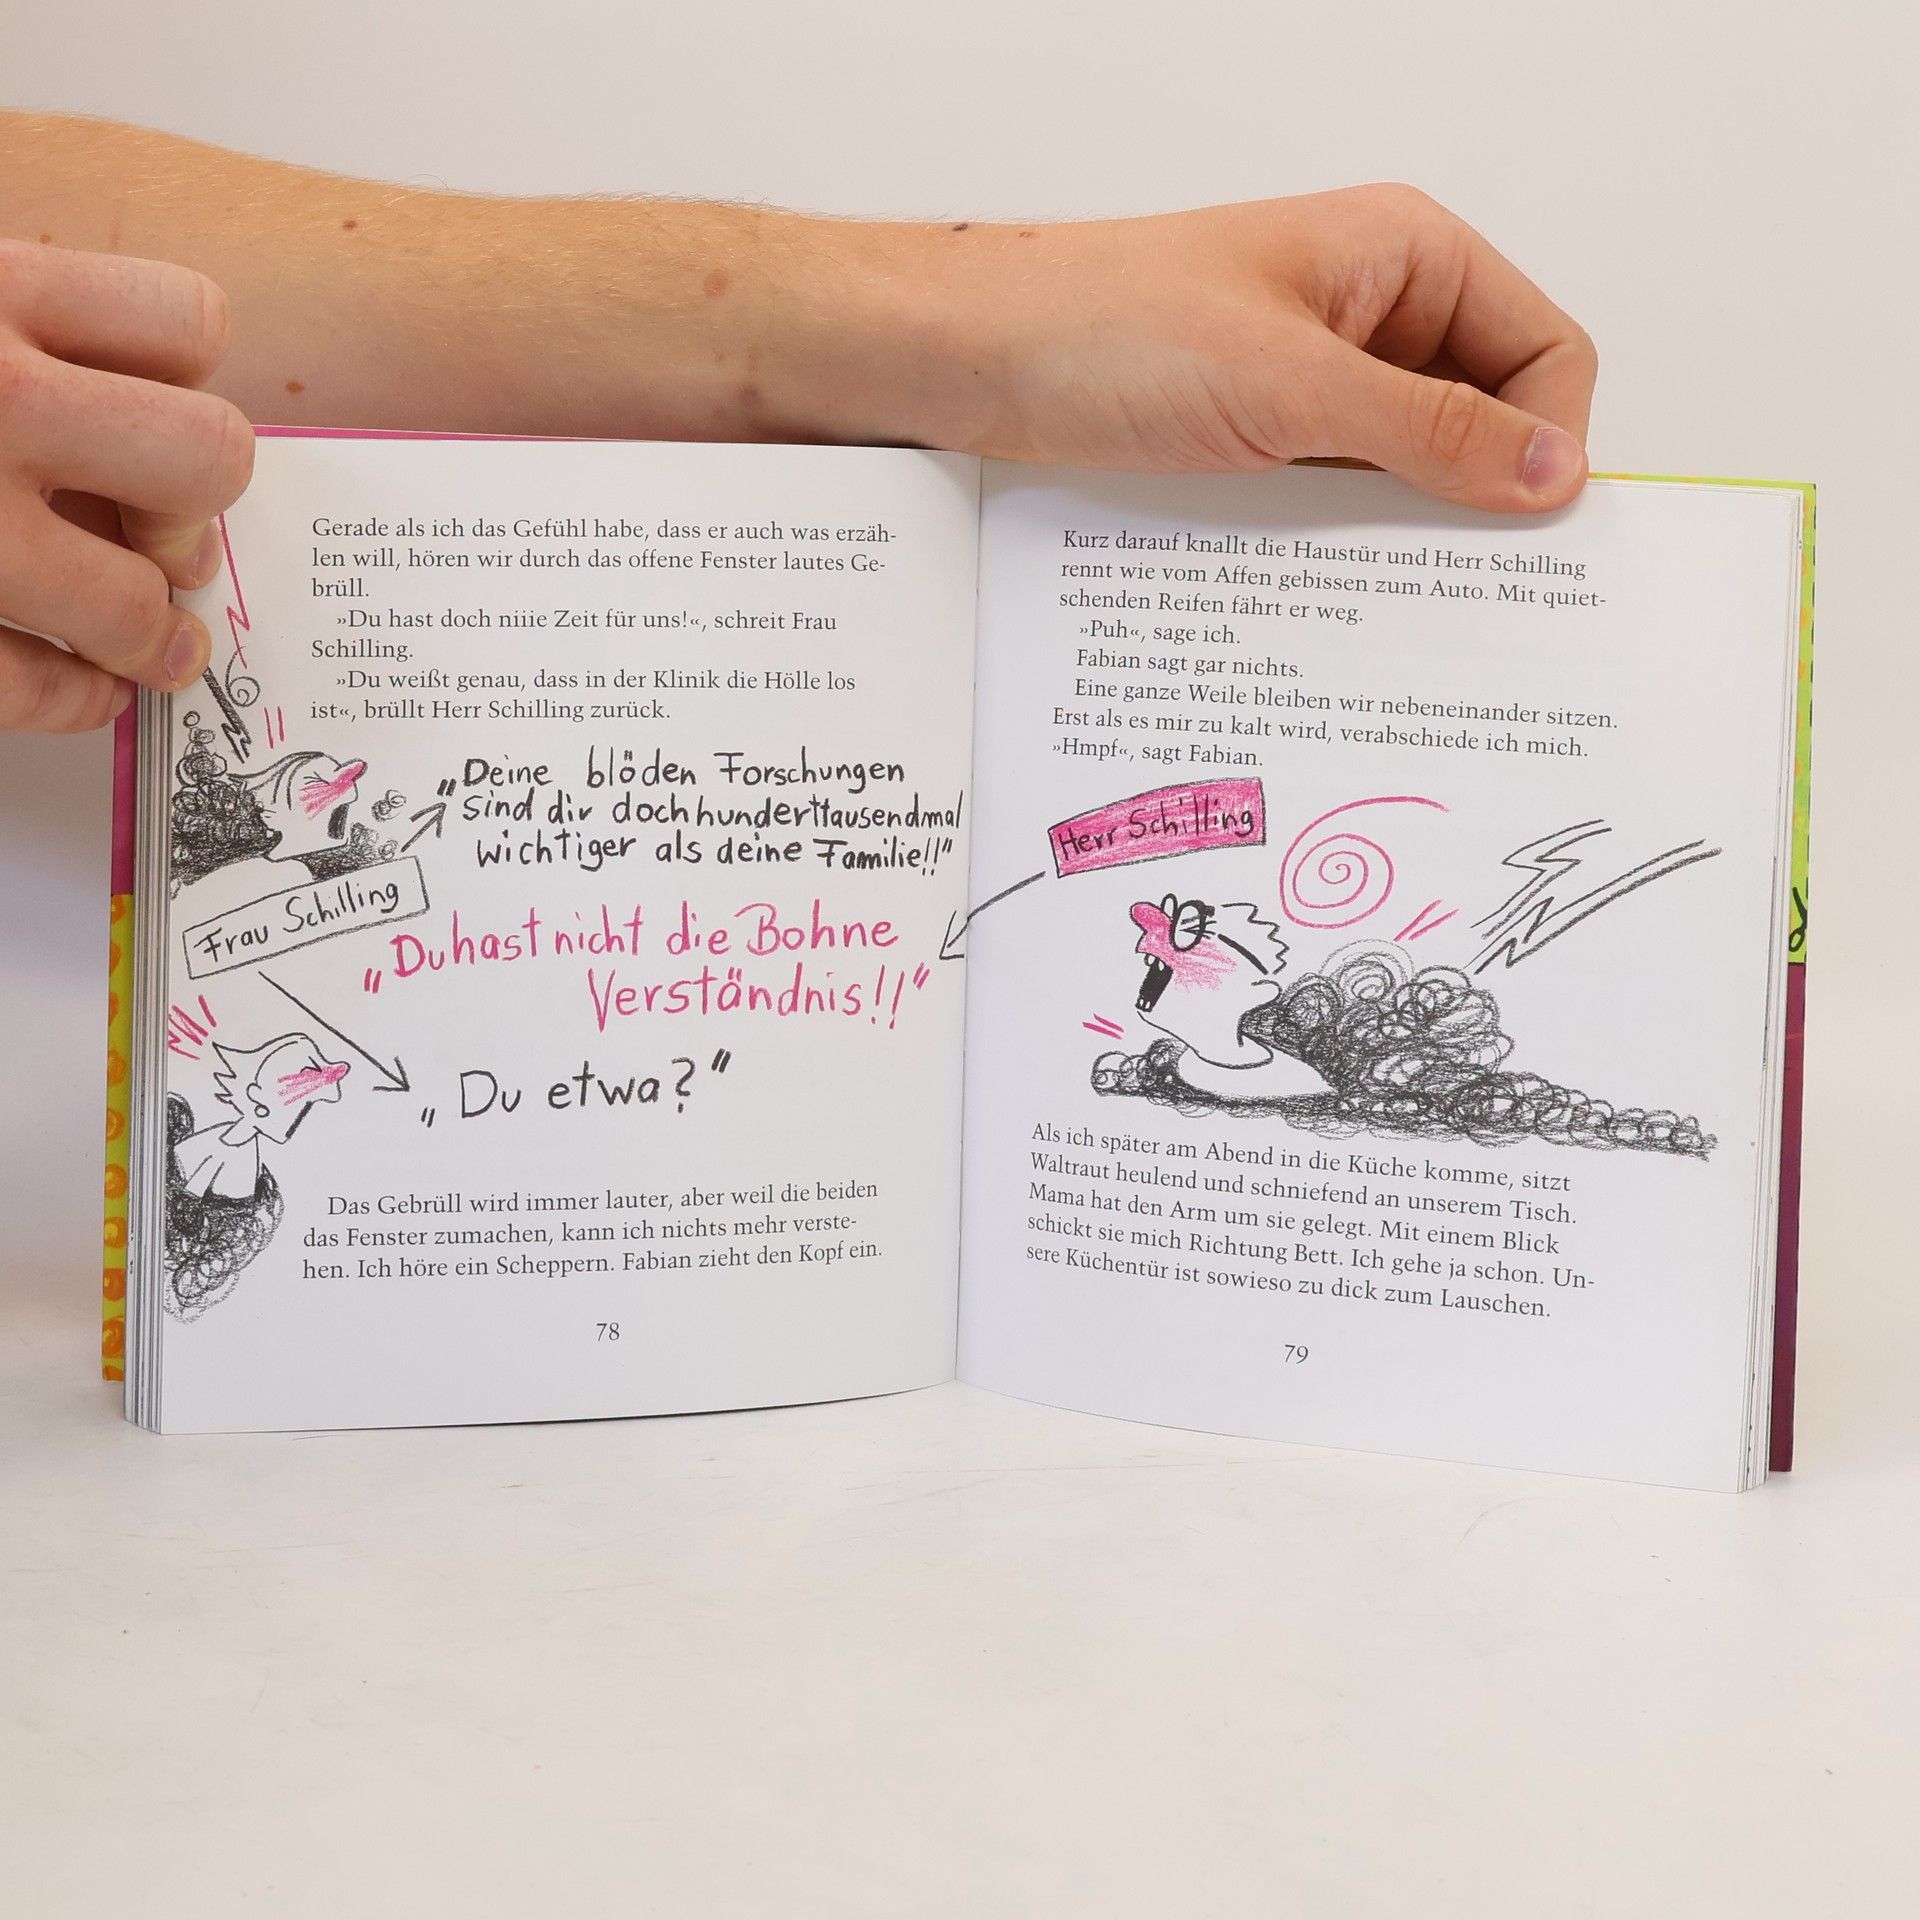 Gerade als ich das Gefühl habe, dass er auch was erzäh-
len will, hören wir durch das offene Fenster lautes Ge-
brüll.
»Du hast doch niiie Zeit für uns!«, schreit Frau
Schilling.
»Du weißt genau, dass in der Klinik die Hölle los
ist«, brüllt Herr Schilling zurück.
„Deine blöden Forschungen
sind dir doch hunderttausendmal
wichtiger als deine Familie!!"
Frau Schilling
„Du hast nicht die Bohne
Verständnis!!"
„Du etwa?"
Das Gebrüll wird immer lauter, aber weil die beiden
das Fenster zumachen, kann ich nichts mehr verste-
hen. Ich höre ein Scheppern. Fabian zieht den Kopf ein.
78
Kurz darauf knallt die Haustür und Herr Schilling
rennt wie vom Affen gebissen zum Auto. Mit quiet-
schenden Reifen fährt er weg.
»Puh«, sage ich.
Fabian sagt gar nichts.
Eine ganze Weile bleiben wir nebeneinander sitzen.
Erst als es mir zu kalt wird, verabschiede ich mich.
»Hmpf«, sagt Fabian.
Herr Schilling
Als ich später am Abend in die Küche komme, sitzt
Waltraut heulend und schniefend an unserem Tisch.
Mama hat den Arm um sie gelegt. Mit einem Blick
schickt sie mich Richtung Bett. Ich gehe ja schon. Un-
sere Küchentür ist sowieso zu dick zum Lauschen.
79